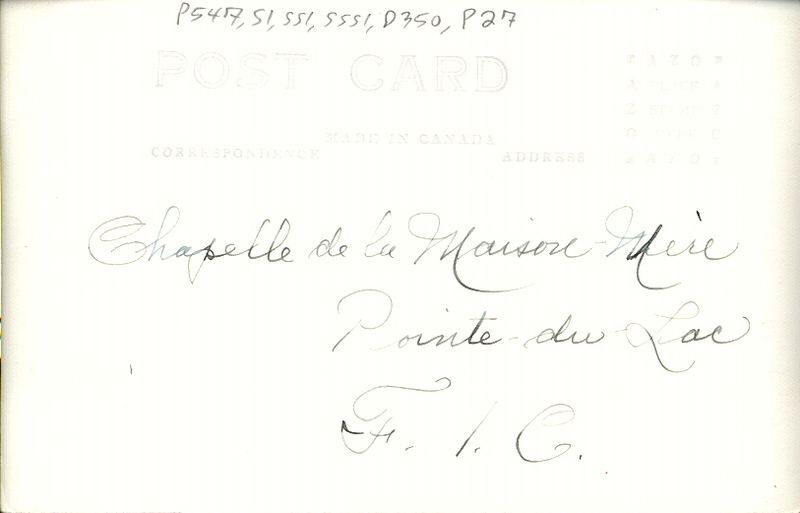 P547, S1, SS1, SSS1, D350, P27
POST CARD
MADE IN CANADA
CORRESPONDENCE ADDRESS
AZO
PLACE
STAMP
HERE
AZO
Chapelle de la Maison-Mère
Pointe-du-Lac
F. I. C.